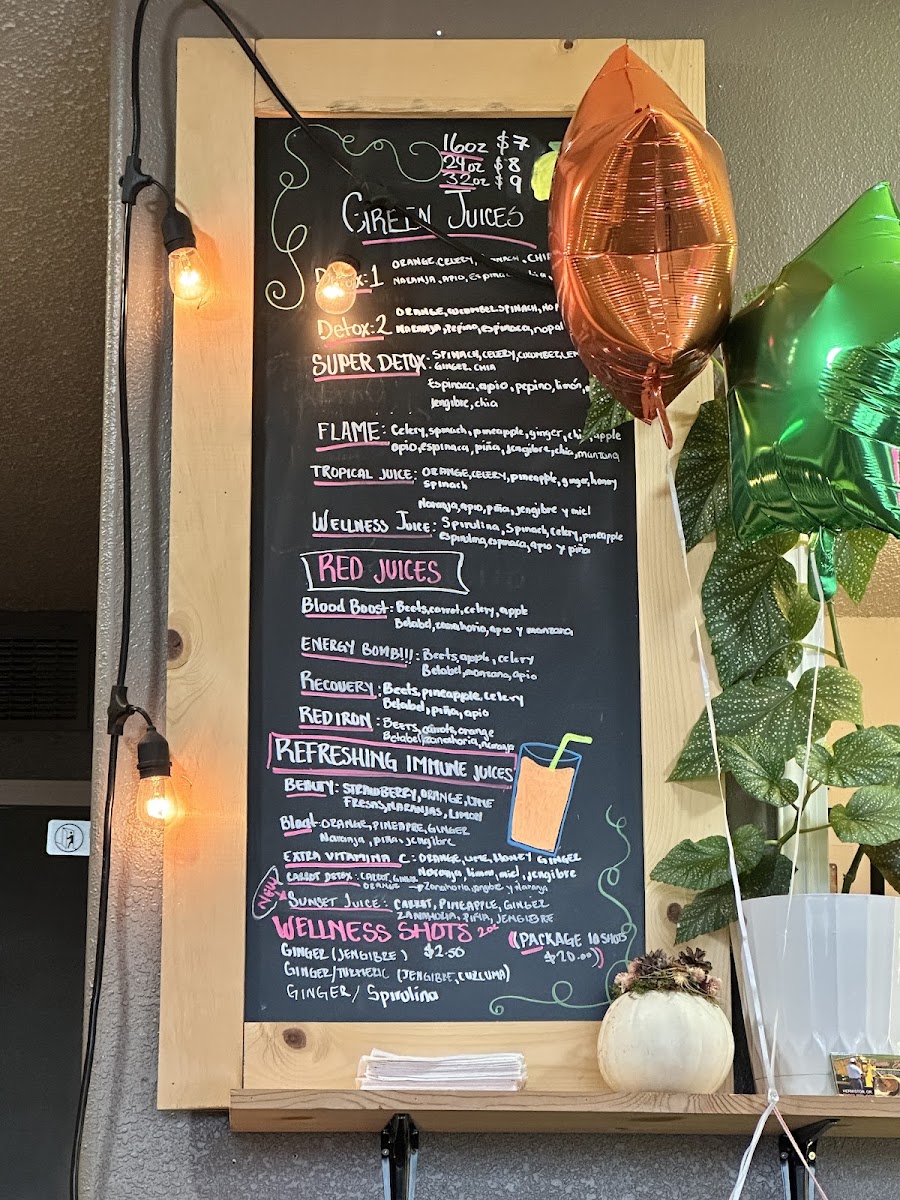 16oz $7
24oz $8
32oz $9
GREEN JUICES
Detox:1 ORANGE, CELERY, CHIA
NARANJA, APIO, Espina
Detox:2 ORANGE, CUCUMBER, SPINACH,
Naranja, Pepino, espinaca, nopal
SUPER DETOX: SPINACH, CELERY, CUCUMBER,
GINGER, CHIA
Espinaca, apio, pepino, limón,
jengibre, chia
FLAME: Celery, spinach, pineapple, ginger, chia, apple
apio, espinaca, piña, jengibre, chia, manzana
TROPICAL JUICE: ORANGE, CELERY, pineapple, ginger, honey
spinach
Naranja, apio, piña, jengibre y miel
WELLNESS JUICE: Spirulina, Spinach, celery, pineapple
Espirulina, espinaca, apio y piña
RED JUICES
Blood Boost: Beets, carrot, celery, apple
Betabel, zanahoria, apio y manzana
ENERGY BOMB!!!: Beets, apple, celery
Betabel, manzana, apio
RECOVERY: Beets, pineapple, celery
Betabel, piña, apio
RED IRON: BEETS, carrots, orange
Betabel, zanahoria, naranja
REFRESHING IMMUNE JUICES
BEAUTY: STRAWBERRY, ORANGE, LIME
FRESAS, NARANJAS, LIMON
Bloat: ORANGE, PINEAPPLE, GINGER
Naranja, piña, jengibre
EXTRA VITAMINA C: ORANGE, LIME, HONEY GINGER
Naranja, limon, miel, jengibre
CARROT DETOX: CARROT, GINGER
ORANGE → Zanahoria, jengibre y Naranja
NEW
SUNSET JUICE: CARROT, PINEAPPLE, GINGER
ZANAHORIA, PIÑA, JENGIBRE
WELLNESS SHOTS 2oz
((PACKAGE 10 SHOTS
$20.00))
GINGER (JENGIBRE) $2.50
GINGER/TURMERIC (JENGIBRE, CURCUMA)
GINGER/Spirulina